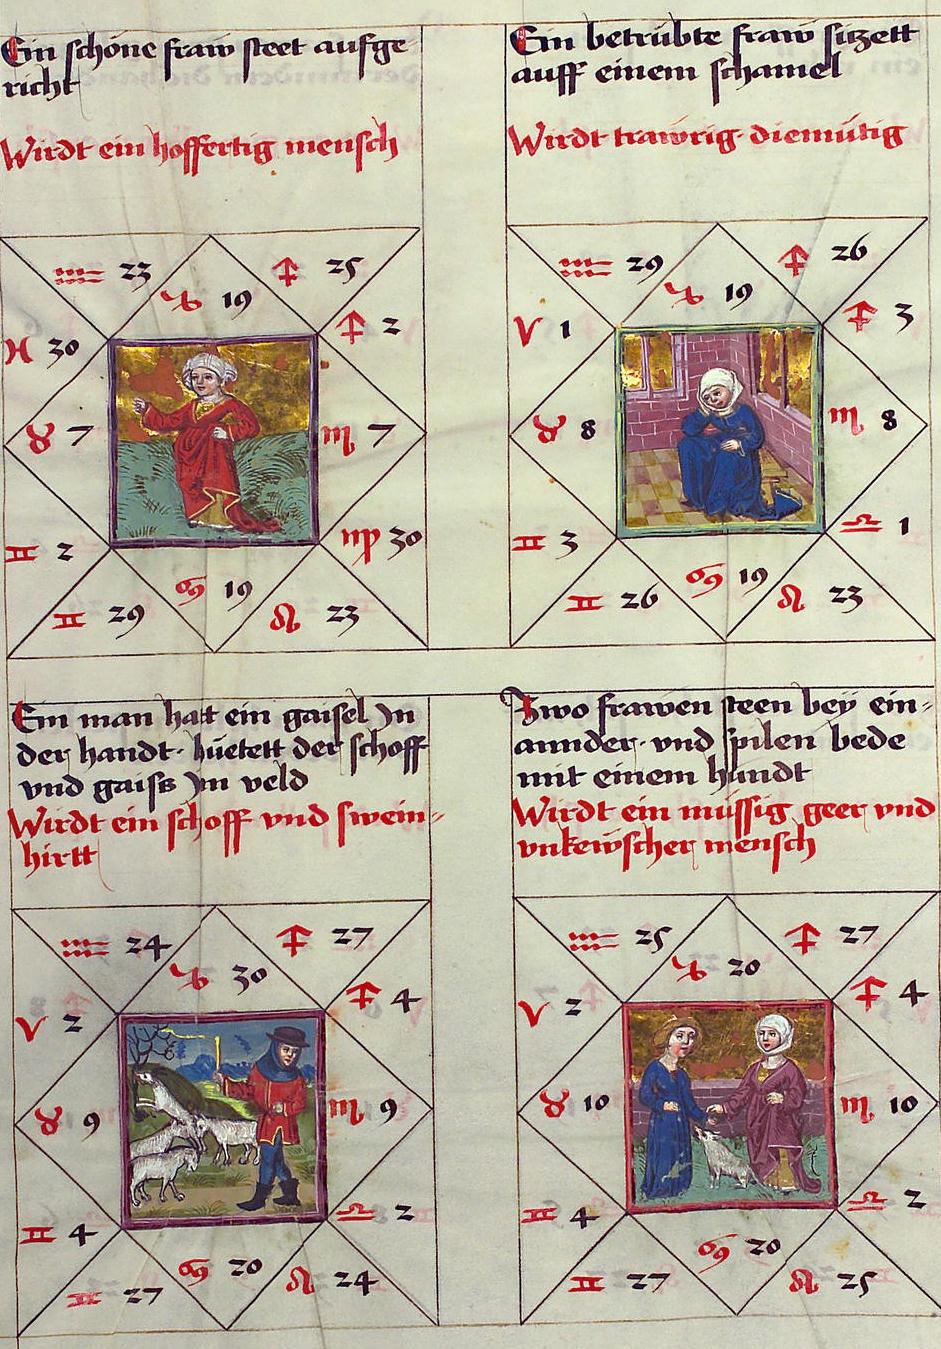 Ein schöne fraw steet aufge
richt
Wirdt ein hoffertig mensch
♒ 23
♑ 19
♐ 25
♓ 30
♐ 2
♉ 7
♏ 7
♊ 2
♍ 30
♊ 29
♋ 19
♌ 23
Ein betrübte fraw sitzett
auff einem schamel
Wirdt trawrig diemütig
♒ 29
♑ 19
♐ 26
♈ 1
♐ 3
♉ 8
♏ 8
♊ 3
♎ 1
♊ 26
♋ 19
♌ 23
Ein man hatt ein gaisel Jn
der handt · hüetett der schoff
vnd gaiss Jm veld
Wirdt ein schoff vnd swein=
hirtt
♒ 24
♑ 30
♐ 27
♈ 2
♐ 4
♉ 9
♏ 9
♊ 4
♎ 2
♊ 27
♋ 20
♌ 24
Zwo frawen steen bey ein=
annder · vnd spilen bede
mit einem hundt
Wirdt ein müssig geer vnd
vnkewscher mensch
♒ 25
♑ 20
♐ 27
♈ 2
♐ 4
♉ 10
♏ 10
♊ 4
♎ 2
♊ 27
♋ 20
♌ 25